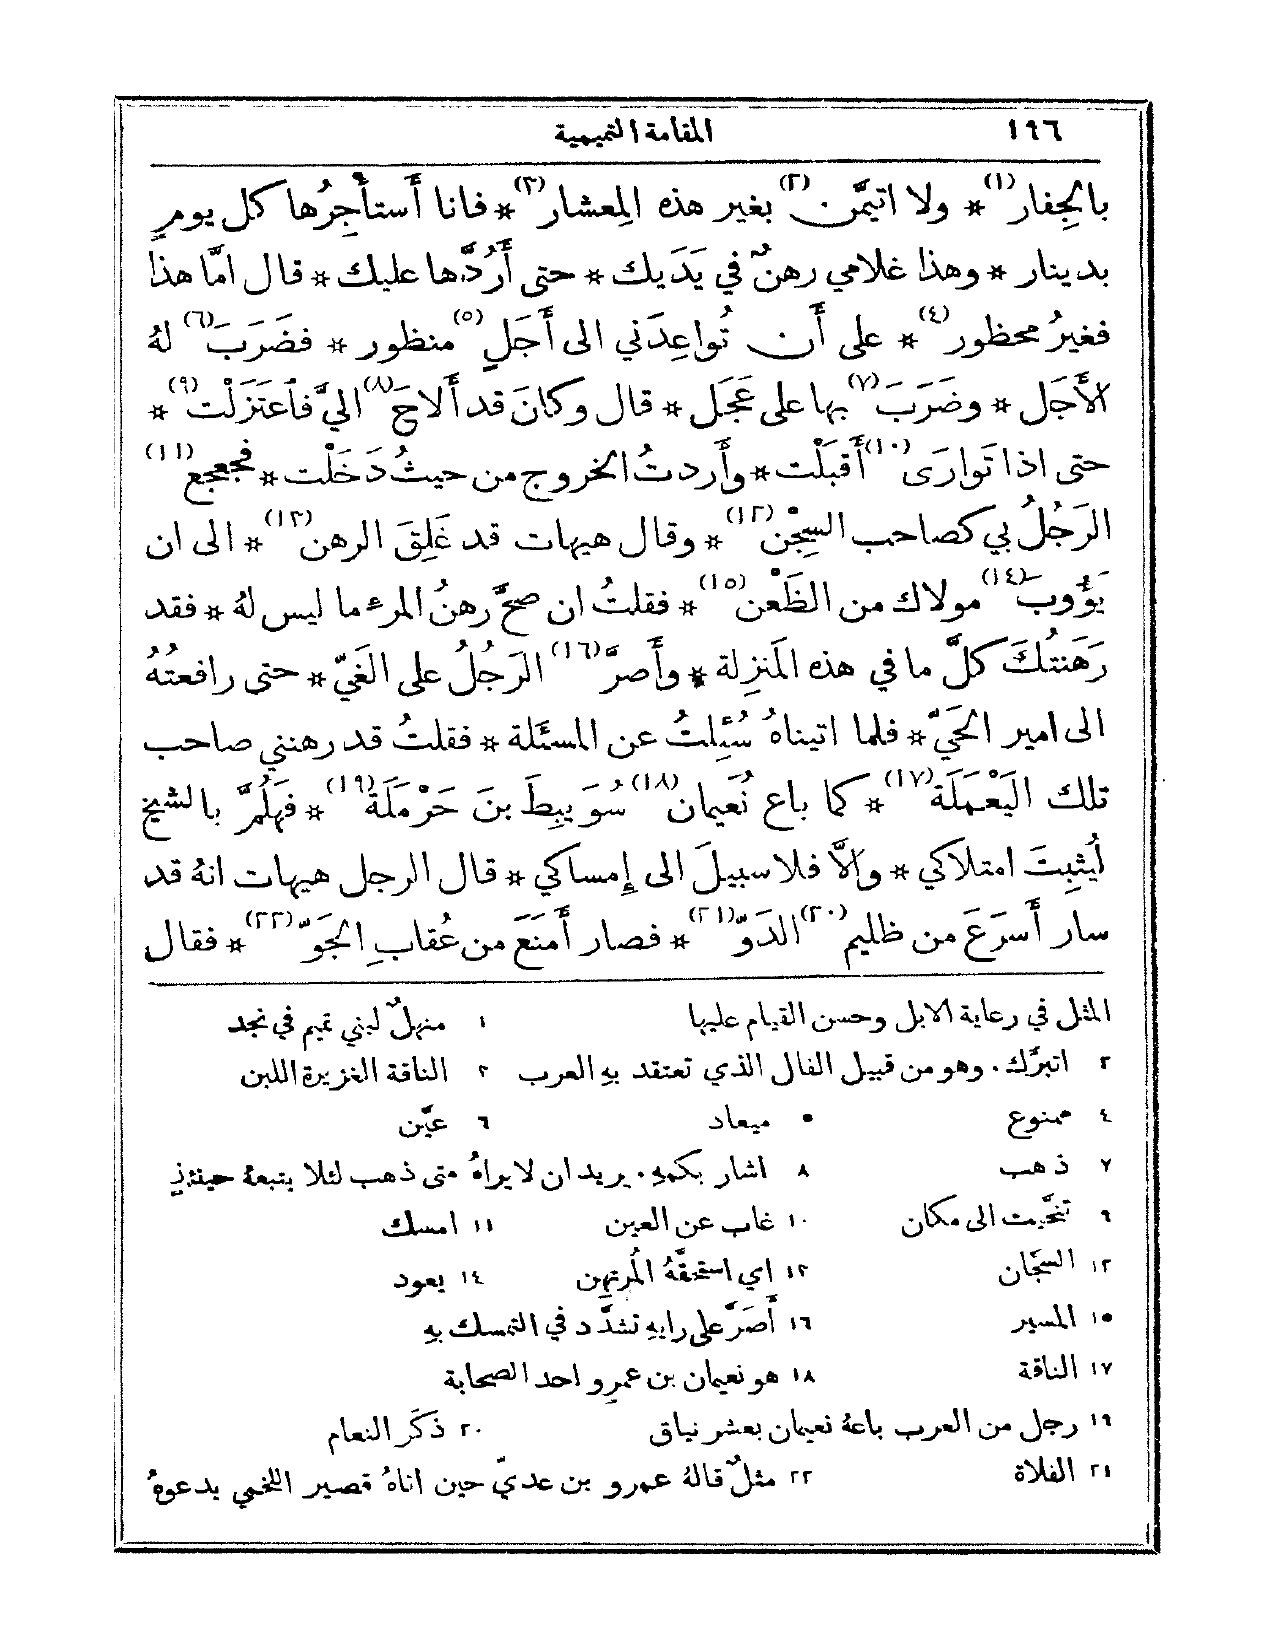 ١٩٦ المقامة التميمية
بالجِفار(١) * ولا اتيمَّن(٢) بغير هذه المِعشار(٣) * فانا أَستأْجِرُها كل يومٍ
بدينار * وهذا غلامي رهنٌ في يَدَيك * حتى أَرُدَّها عليك * قال امَّا هذا
فغيرُ محظور(٤) * على أَن تُواعِدَني الى أَجَلٍ(٥) منظور * فضَرَبَ(٦) لهُ
الأَجَل * وضَرَبَ(٧) بها على عَجَل * قال وكانَ قد أَلاحَ(٨) اليَّ فاَعتَزَلْت(٩) *
حتى اذا تَوارَى(١٠) أَقبَلْت * وأَردتُ الخروج من حيثُ دَخَلْت * فجعجع(١١)
الرَجُلُ بي كصاحب السِجْن(١٢) * وقال هيهات قد غَلِقَ الرهن(١٣) * الى ان
يَؤُوبَ(١٤) مولاك من الظَعْن(١٥) * فقلتُ ان صحَّ رهنُ المرءِ ما ليس لهُ * فقد
رَهَنتُكَ كلَّ ما في هذه المَنزِلة * وأَصرَّ(١٦) الرَجُلُ على الغَيّ * حتى رافعتُهُ
الى امير الحَيّ * فلما اتيناهُ سُئِلتُ عن المسئَلة * فقلتُ قد رهنني صاحب
تلك اليَعْمَلَة(١٧) * كما باع نُعَيمان(١٨) سُوَيبِطَ بنَ حَرْمَلَة(١٩) * فهَلُمَّ بالشيخ
لِيُثبِتَ امتلاكي * وإلَّا فلا سبيلَ الى إِمساكي * قال الرجل هيهات انهُ قد
سار أَسرَعَ من ظليم(٢٠) الدَوّ(٢١) * فصار أَمنَع من عُقابِ الجَوّ(٢٢) * فقال
المثل في رعاية الابل وحسن القيام عليها ١ منهلٌ لبني تميم في نجد
٢ اتبرَّك. وهو من قبيل الفال الذي تعتقد بهِ العرب ٣ الناقة الغزيرة اللبن
٤ ممنوع ٥ ميعاد ٦ عيَّن
٧ ذهب ٨ اشار بكمهِ. يريد ان لا يراهُ متى ذهب لئلا يتبعهُ حينئذٍ
٩ تنحَّيت الى مكان ١٠ غاب عن العين ١١ امسك
١٢ السجَّان ١٣ اي استحقَّهُ المُرتهِن ١٤ يعود
١٥ المسير ١٦ أَصَرَّ على رايهِ تشدَّد في التمسك بهِ
١٧ الناقة ١٨ هو نعيمان بن عمرٍو احد الصحابة
١٩ رجل من العرب باعهُ نعيمان بعشر نياق ٢٠ ذَكَر النعام
٢١ الفلاة ٢٢ مثلٌ قالهُ عمرو بن عديّ حين اتاهُ قصير اللخمي يدعوهُ